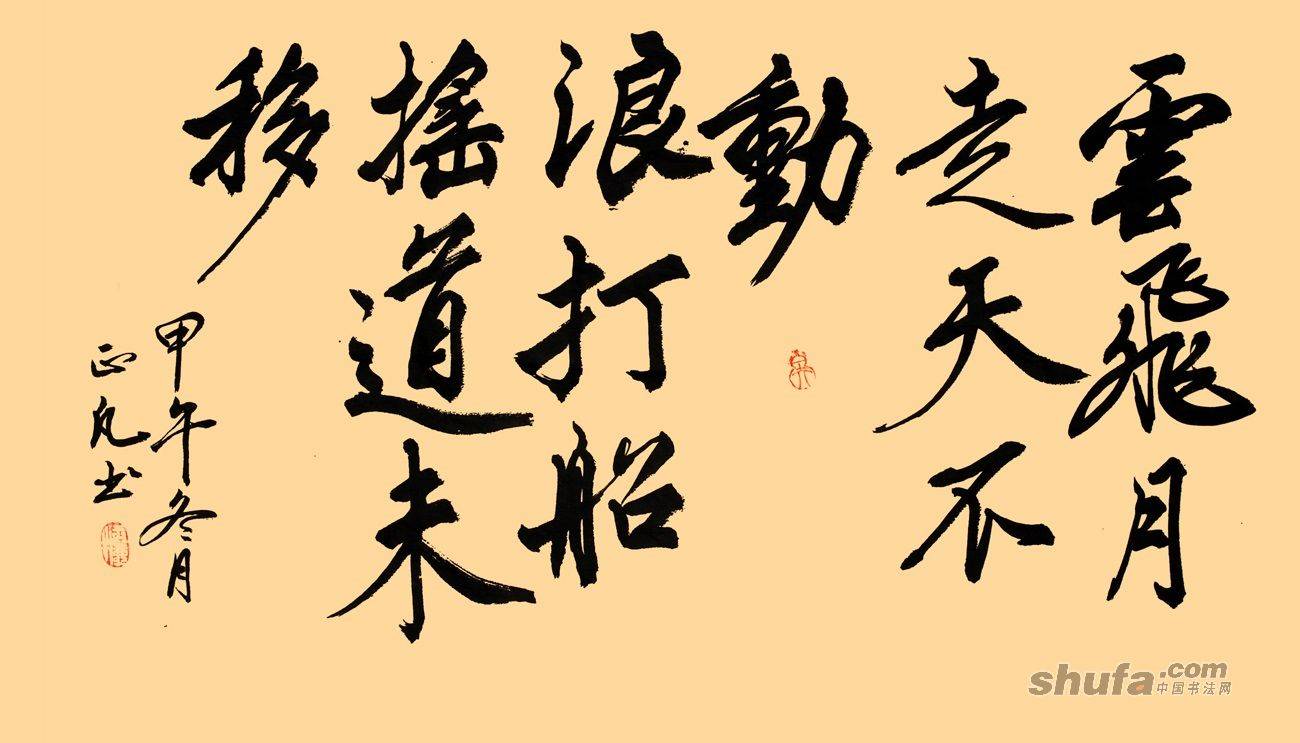 雲飛月
走天不
動
浪打船
搖道未
移
甲午冬月
正凡书
shufa.com
中国书法网